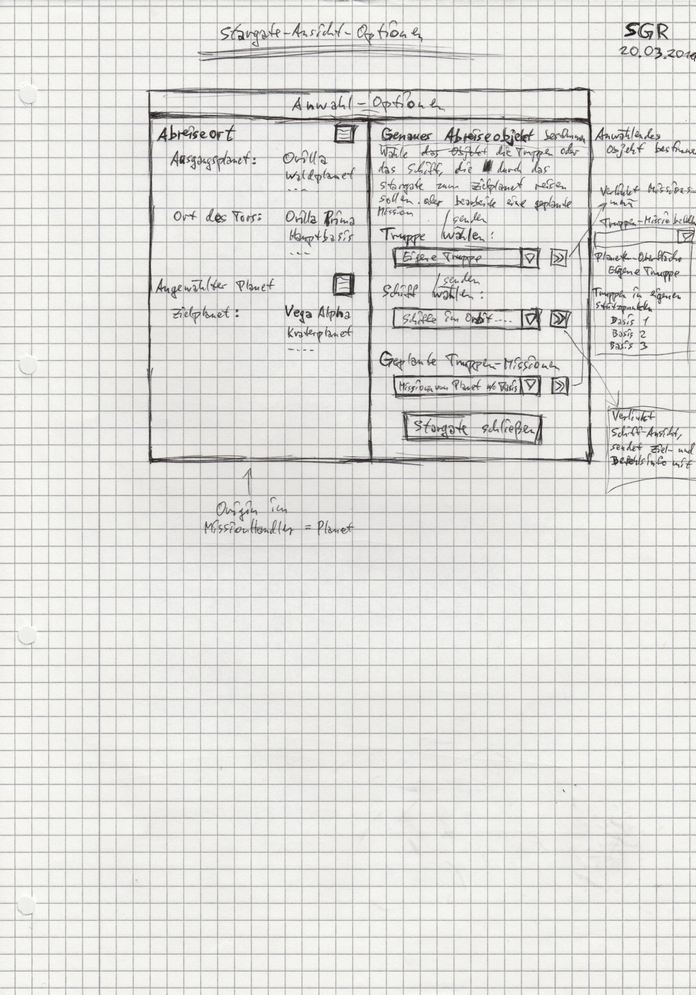 Stargate-Ansicht-Optionen
SGR
20.03.201
Anwahl-Optionen
Abreiseort
Ausgangsplanet: Orilla
Waldplanet
---
Ort des Tors: Orilla Prima
Hauptbasis
---
Angewählter Planet
Zielplanet: Vega Alpha
Kraterplanet
----
Genaues Abreiseobjekt bestimmen
Wähle das Objekt die Truppen oder
das Schiff, die durch das
Stargate zum Zielplanet reisen
sollen. oder bearbeite eine geplante
Mission
/senden
Truppe wählen:
Eigene Truppe
/senden
Schiff wählen:
Schiffe im Orbit ...
Geplante Truppen-Missionen
Missionen von Planet Basis
Stargate schließen
Anwählendes
Objekt bestimmen
Verlinkt Missions-
Truppen-Missio
Planeten-Oberfläche
Eigene Truppe
Truppen in eigenen
Stützpunkten
Basis 1
Basis 2
Basis 3
Verlinkt
Schiff-Ansicht,
sendet Ziel- und
Befehlsinfo mit
Origin im
MissionHandler = Planet